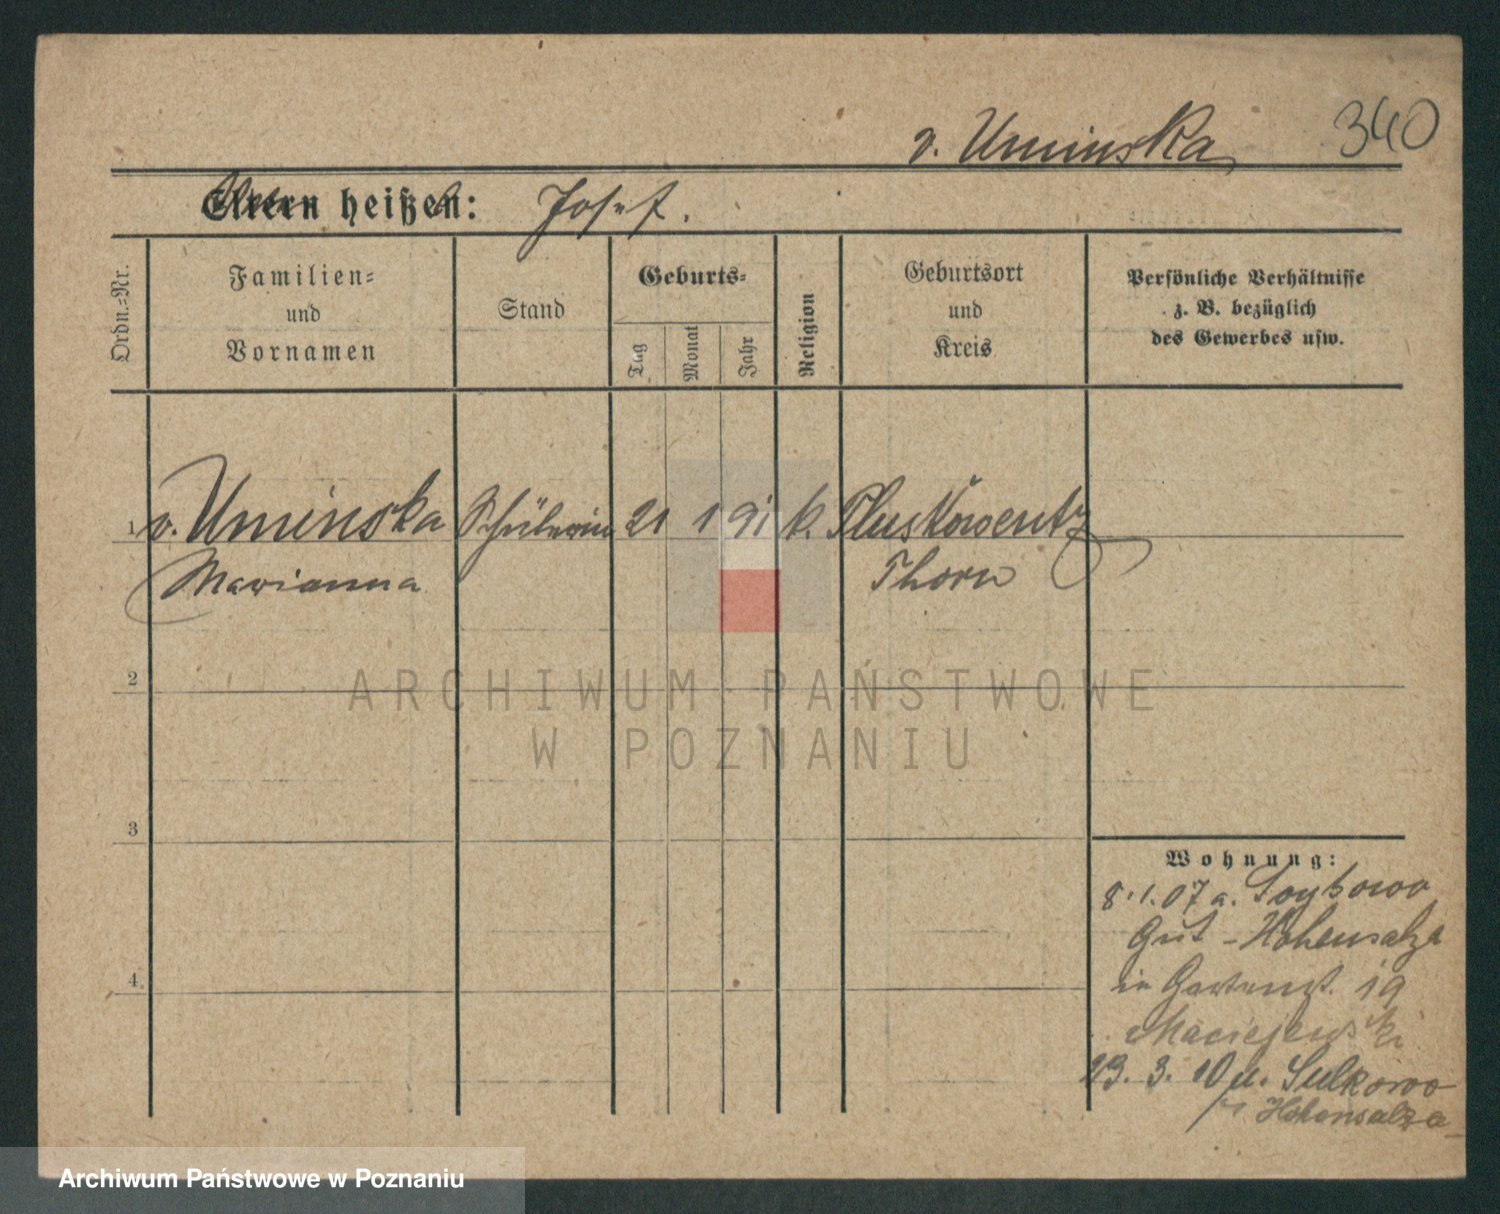 v. Uminska 340
Eltern heißen: Josef.
Ordn.-Nr.
Familien-
und
Vornamen
Stand
Geburts-
Tag
Monat
Jahr
Religion
Geburtsort
und
Kreis
Persönliche Verhältnisse
z. B. bezüglich
des Gewerbes usw.
1 v. Uminska Schülerin 21 1 91 k. Pluskowentz
Marianna Thorn
2
3
4
Wohnung:
8.1.07 a.
Gut - Hohensalza
in Gartenst. 19
Maciejewski
23. 3. 10 u. Sulkowo
Hohensalza
ARCHIWUM PAŃSTWOWE
W POZNANIU
Archiwum Państwowe w Poznaniu